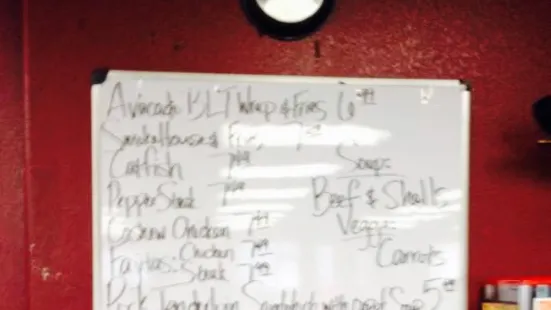 Avacado BLT Wrap & Fries 6.99
SmokeHouse & Fries 7
Catfish 7.99
Pepper Steak 7.99
Cashew Chicken 7.99
Fajitas: Chicken 7.99
Steak 7.99
Pork Tenderloin Sandwich with cup of Soup 5
Soup:
Beef & Shells
Veggie:
Carrots